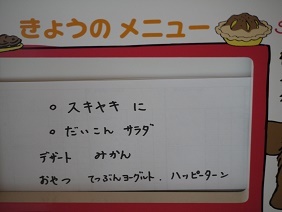 きょうの メニュー
○ スキヤキ に
○ だいこん サラダ
デザート みかん
おやつ てつぶんヨーグルト.ハッピーターン